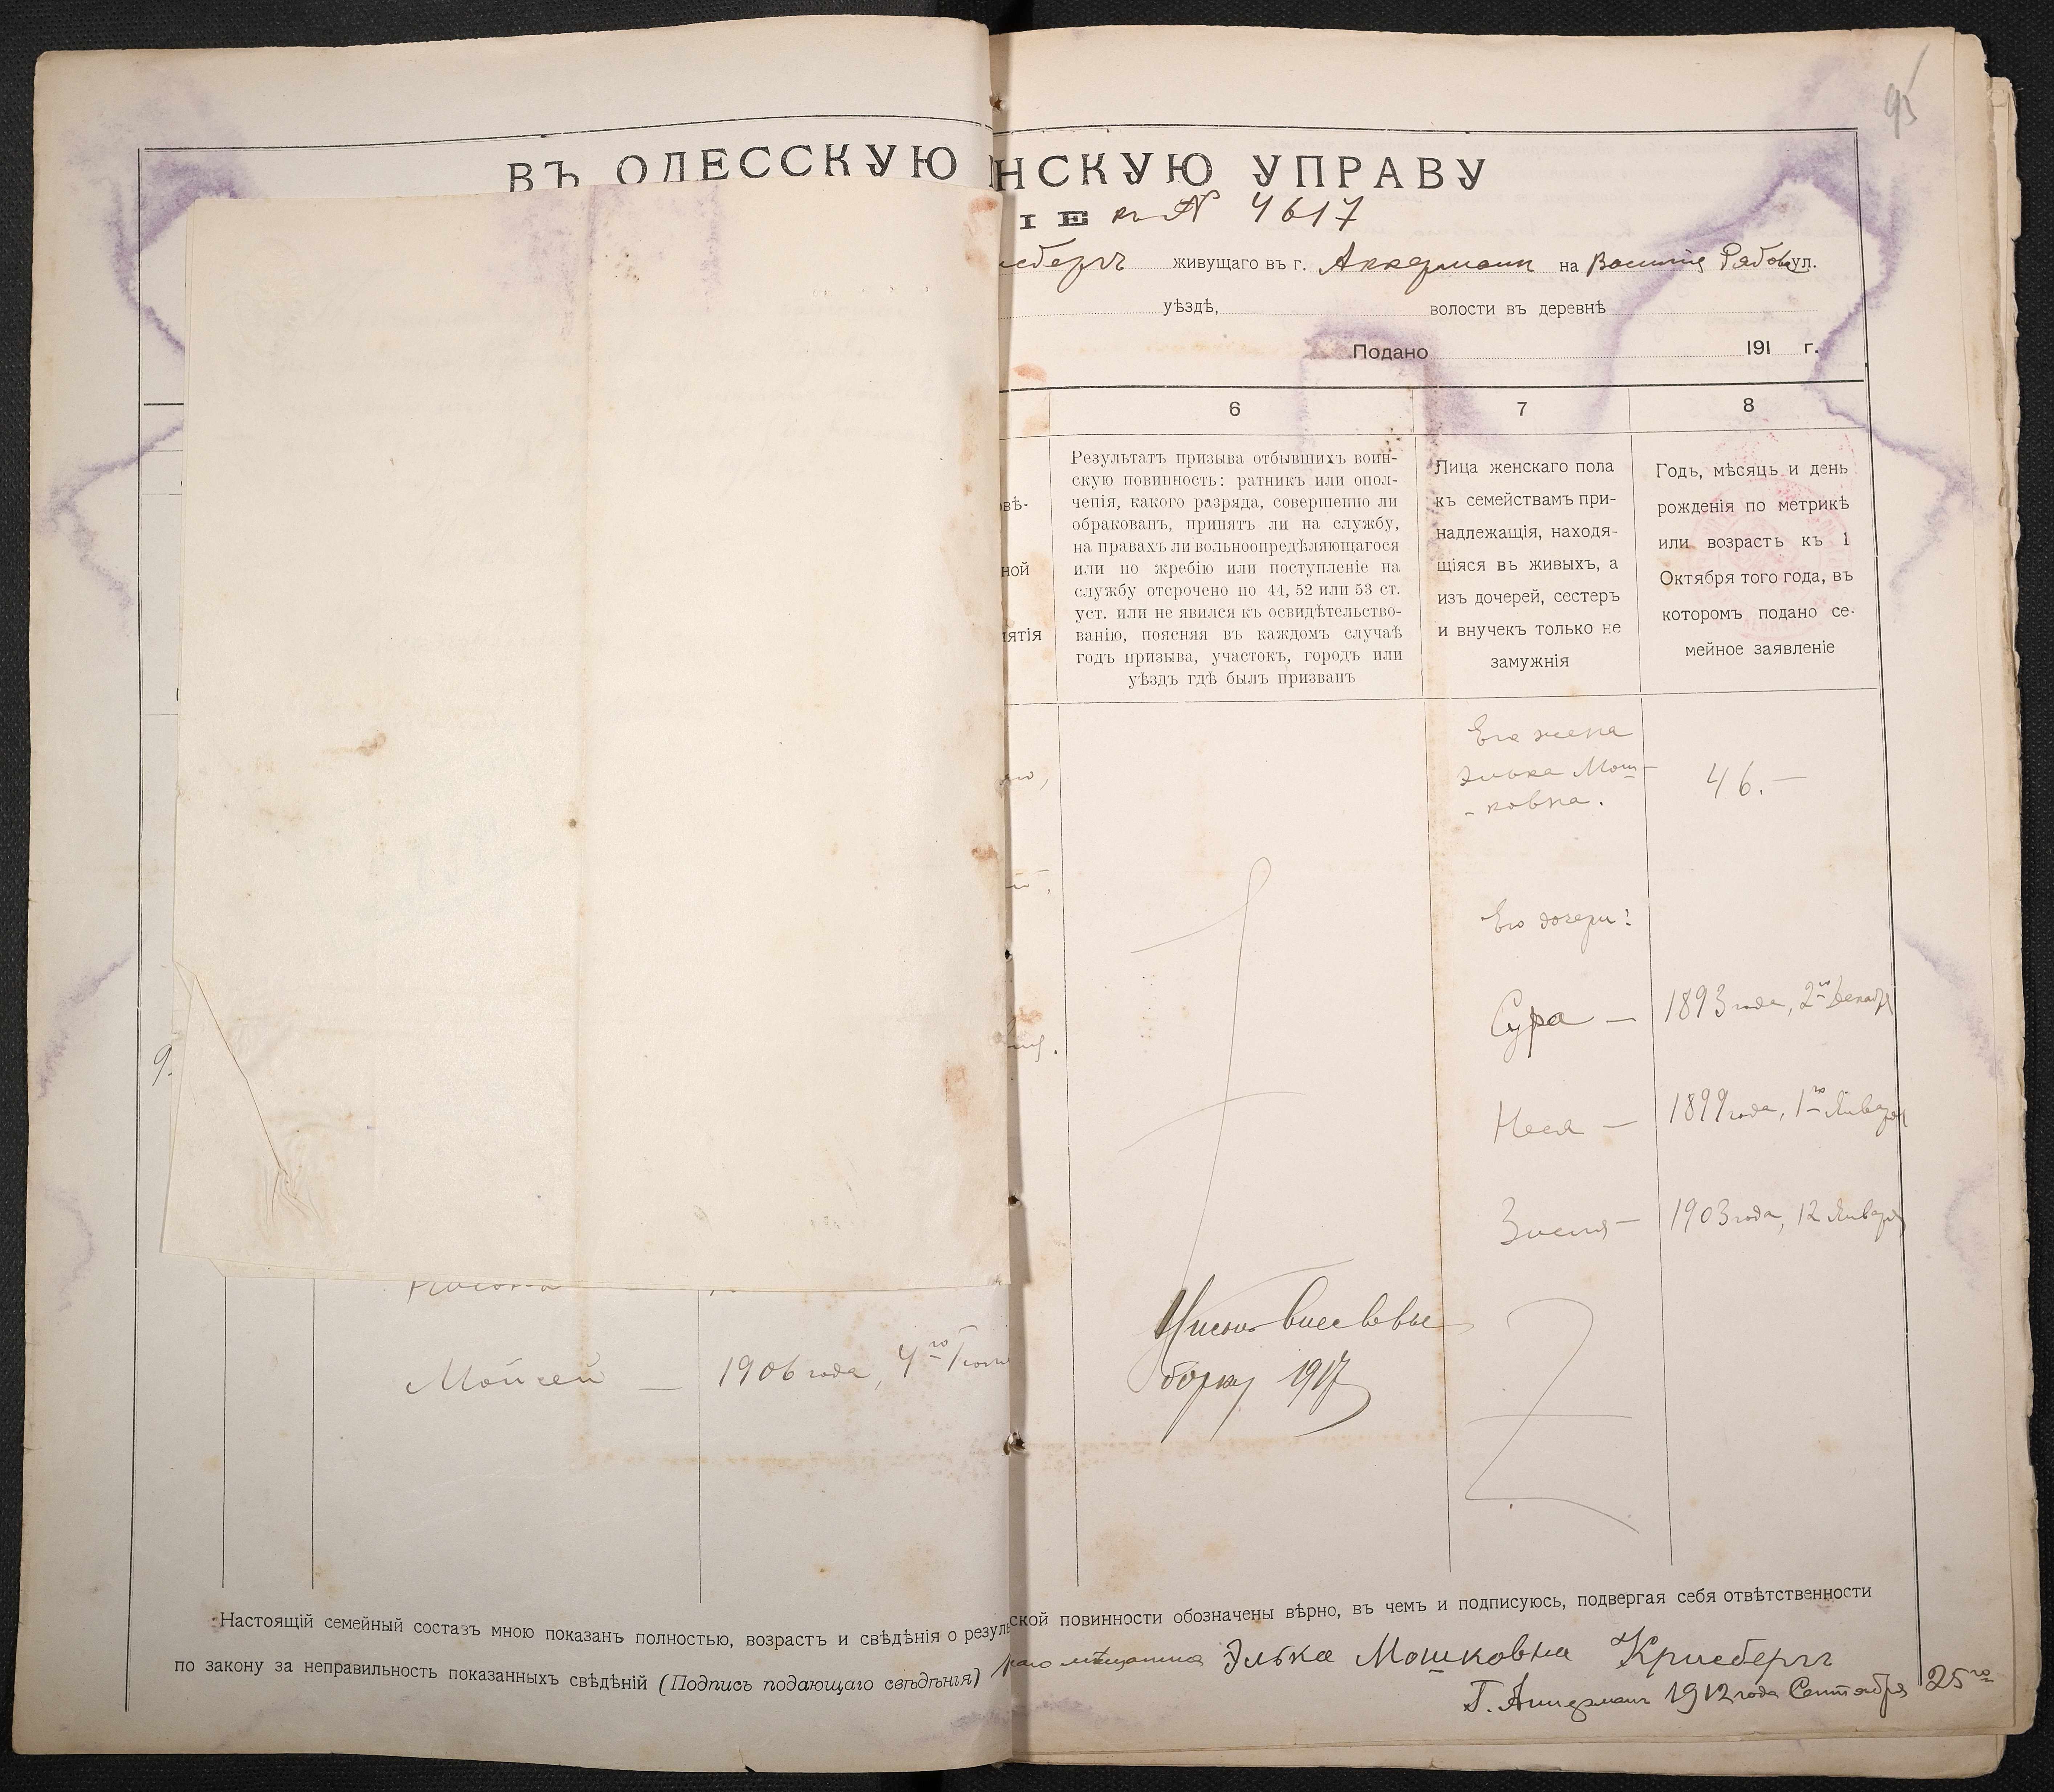 95
ВЪ ОДЕССКУЮ
НСКУЮ УПРАВУ
ІЕ къ № 4617
сбергъ живущаго въ г. Аккерманъ на ул.
уѣздѣ, волости въ деревнѣ
Подано 191 г.
6 7 8
вѣ-
ной
ятія
Результатъ призыва отбывшихъ воин-
скую повинность: ратникъ или опол-
ченія, какого разряда, совершенно ли
обракованъ, принятъ ли на службу,
на правахъ ли вольноопредѣляющагося
или по жребію или поступленіе на
службу отсрочено по 44, 52 или 53 ст.
уст. или не явился къ освидѣтельство-
ванію, поясняя въ каждомъ случаѣ
годъ призыва, участокъ, городъ или
уѣздъ гдѣ былъ призванъ
Лица женскаго пола
къ семействамъ при-
надлежащія, находя-
щіяся въ живыхъ, а
изъ дочерей, сестеръ
и внучекъ только не
замужнія
Годъ, мѣсяцъ и день
рожденія по метрикѣ
или возрастъ къ 1
Октября того года, въ
которомъ подано се-
мейное заявленіе
Его жена
Элька Мош-
-ковна. 46.—
Его дочери:
Сура — 1893 года, 2го Декабря
9.
Неся — 1899 года, 1го Января
Зисля — 1903 года, 12 Января
Мойсей — 1906 года, 4го
1917
Настоящій семейный составъ мною показанъ полностью, возрастъ и свѣдѣнія о резуль
ской повинности обозначены вѣрно, въ чемъ и подписуюсь, подвергая себя отвѣтственности
по закону за неправильность показанныхъ свѣдѣній (Подпись подающаго свѣдѣнія)
Элька Мошковна Крисбергъ
Г. Аккерманъ 1912 года Сентября 25го